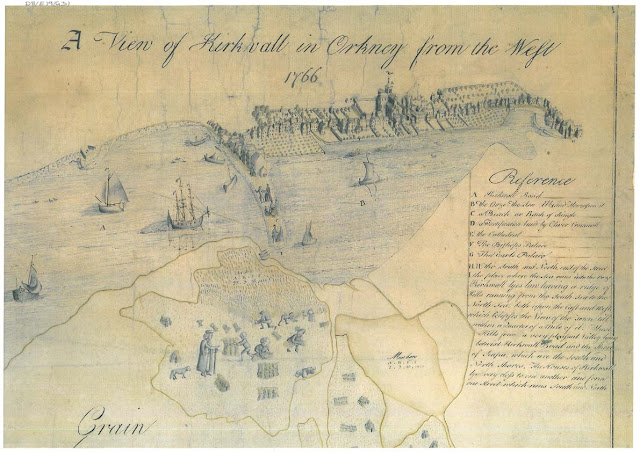 A View of Kirkwall in Orkney from the West
1766
Reference
A Kirkwall Road
B the Oyce
C a Beach or Bank of
D a Fortification built by Oliver Cromwell
E the Cathedral
F The Bishops Palace
G The Earls Palace
H H the South and North end of the Street
I the place where the Sea runs into the Oyce
Kirkwall lyes low having a ridge of
Hills running from the South Sea to the
North Sea both upon the East and West
which the View of the Town
within a Quarter of a Mile of it. These
Hills form a very pleasant Valley
betwixt Kirkwall Road and the
of Scapa, which are the South and
North Shores, The Houses of Kirkwall
lye very close to one another and form
one Street which runs South and North
A
B
Grain